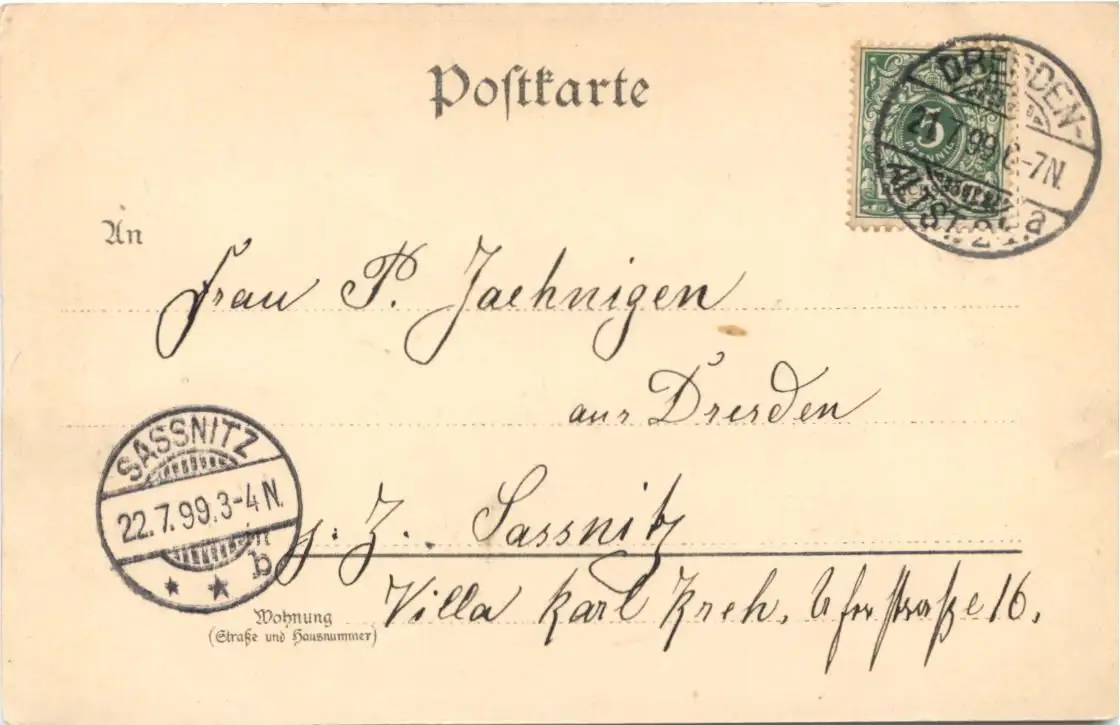 Postkarte
5
DRESDEN-
21.7.99.6-7N.
ALTST. 24.a
An
Frau P. Jaehnigen
aus Dresden
SASSNITZ
22.7.99.3-4N.
b
z. Z. Sassnitz
Wohnung
(Straße und Hausnummer)
Villa Karl Kreh, Uferstraße 16.